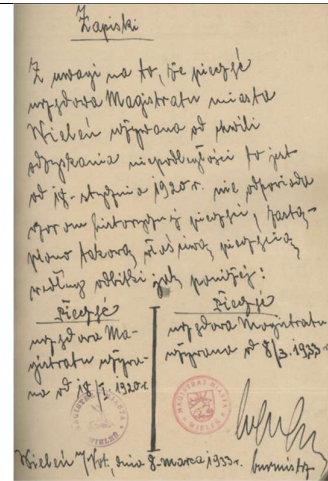 Zapiski
Z uwagi na to, że pieczęć
urzędowa Magistratu miasta
Wieleń używana od chwili
odzyskania niepodległości to jest
od 18-stycznia 1920 r. nie odpowiada
historycznej pieczęci, zastą-
piono takową właściwą pieczęcią,
według odbitki jak poniżej:
Pieczęć
urzędowa Ma-
gistratu używa-
na od 18/1. 1920 r.
MAGISTRAT MIASTA
WIELEŃ
Pieczęć
urzędowa Magistratu
używana od 8/3. 1933 r.
MAGISTRAT MIASTA
WIELEŃ
Wieleń n/Not, dnia 8-marca 1933 r. burmistrz